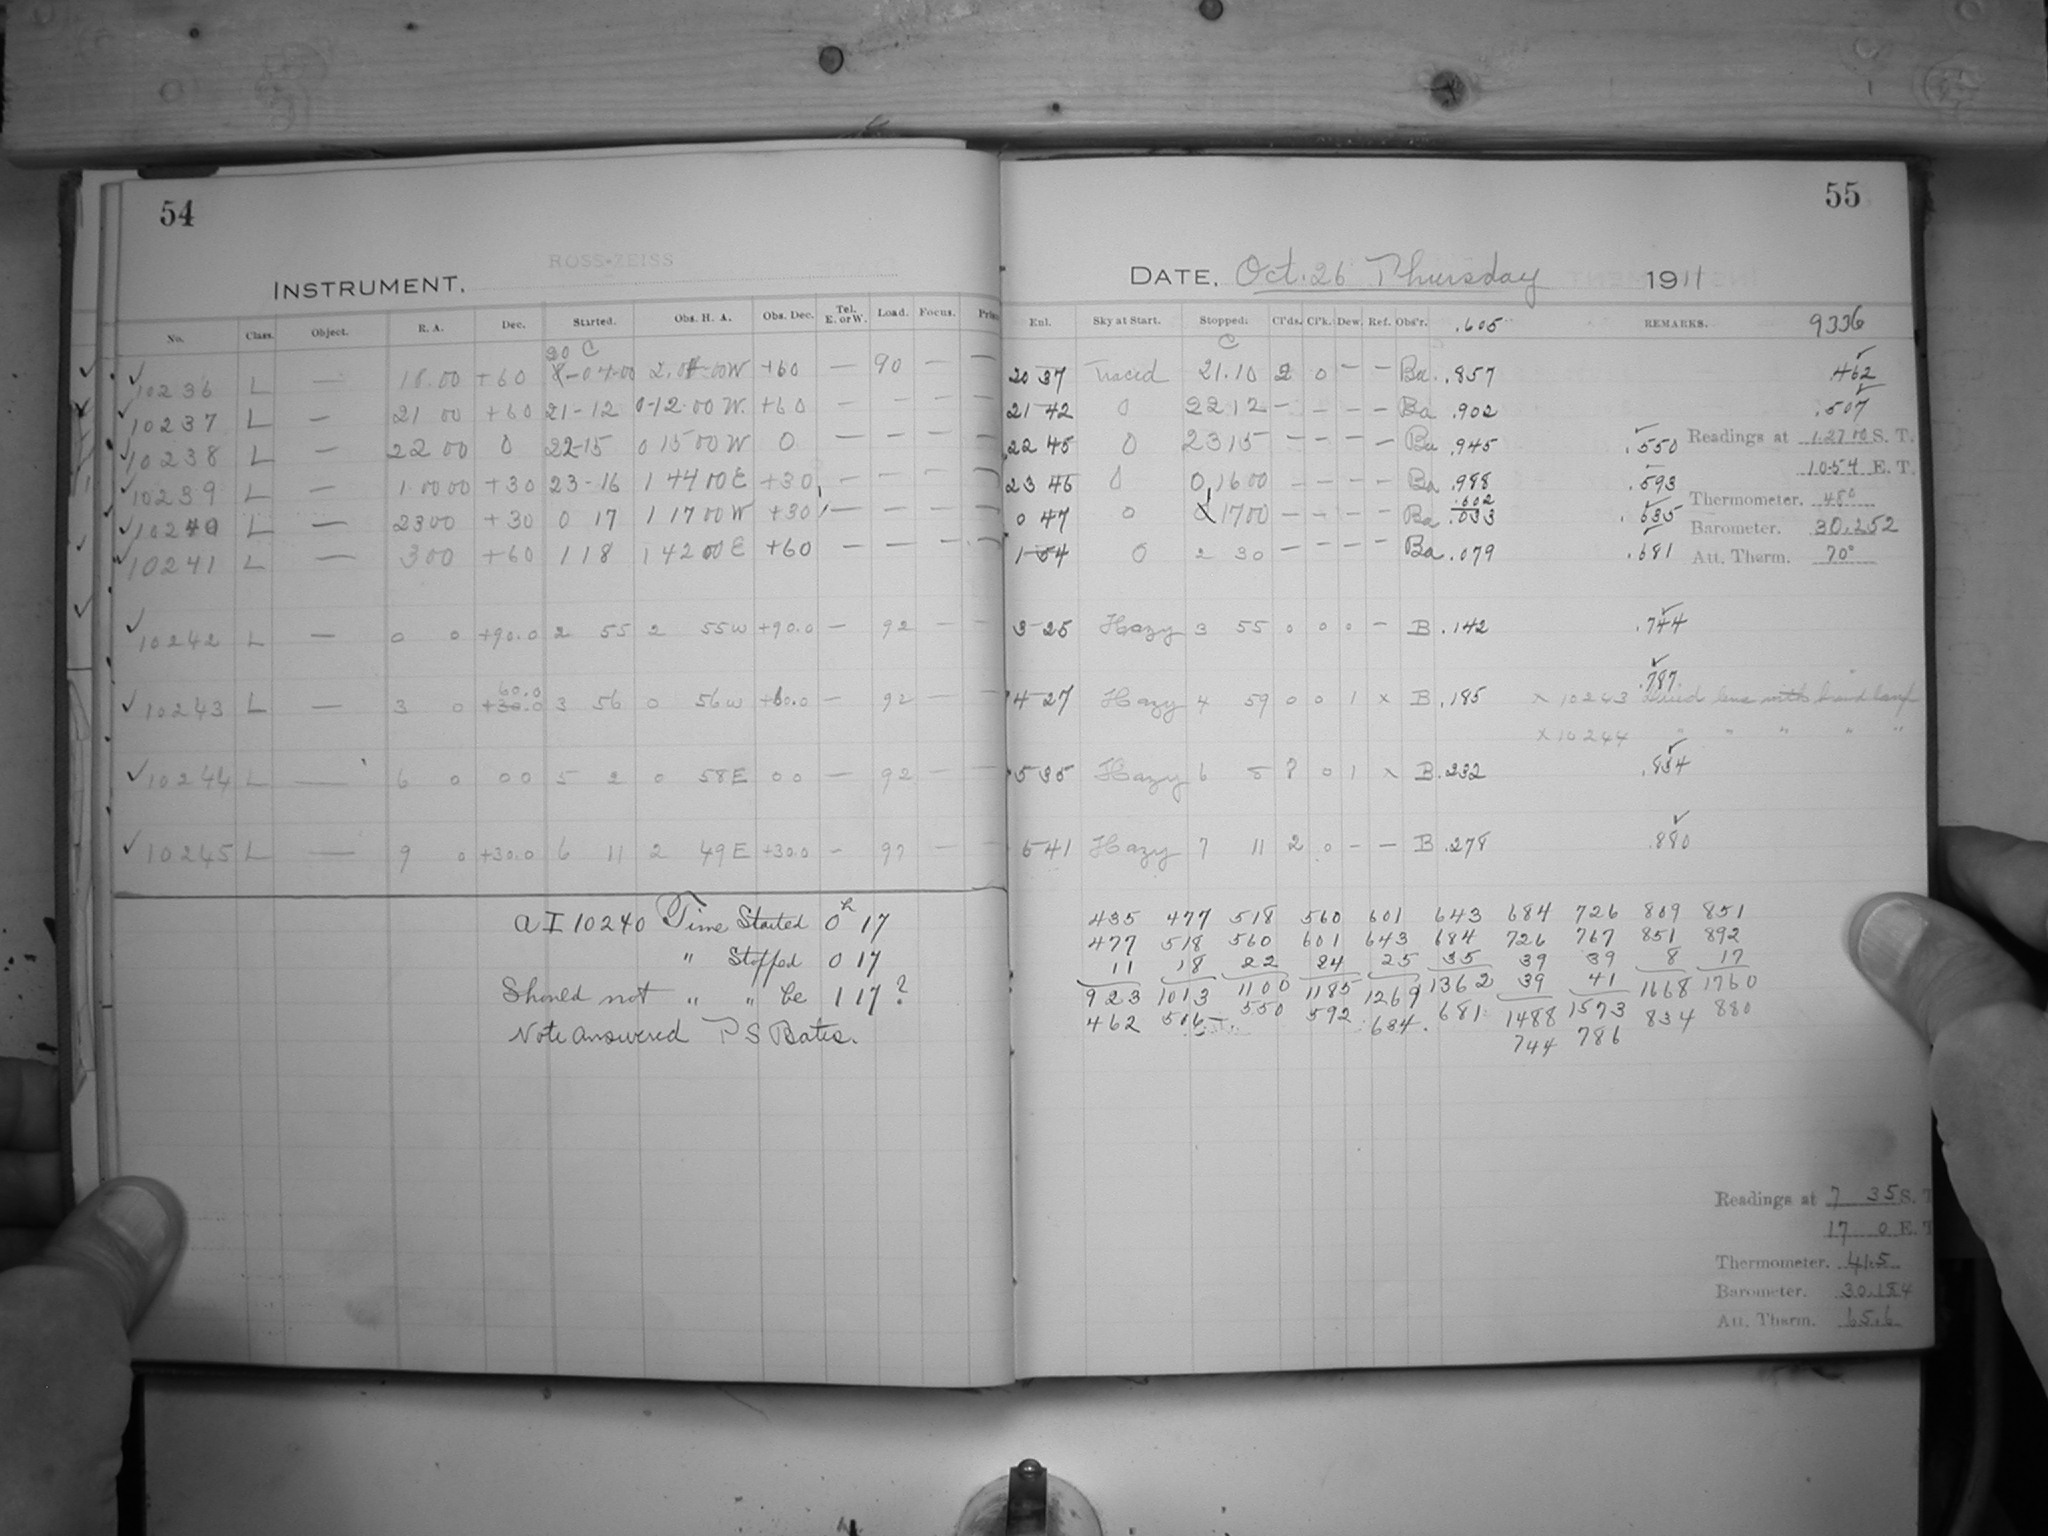 54
ROSS-ZEISS
INSTRUMENT.
No. Class. Object. R. A. Dec. Started. Obs. H. A. Obs. Dec. Tel. E. or W. Load. Focus.
20 C
10236 L — 18.00 +60 -04-00 2.04-00W +60 — 90 — —
10237 L — 21 00 +60 21-12 0-12-00 W. +60 — — — —
10238 L — 22 00 0 22-15 0 15 00 W 0 — — — —
10239 L — 1.0000 +30 23-16 1 44 00 E +30 — — — —
10240 L — 2300 +30 0 17 1 17 00 W +30 — — — —
10241 L — 300 +60 1 18 1 42 00 E +60 — — — —
10242 L — 0 0 +90.0 2 55 2 55W +90.0 — 92 — —
60.0
10243 L — 3 0 +30.0 3 56 0 56W +60.0 — 92 — —
10244 L — 6 0 00 5 2 0 58E 00 — 92 — —
10245 L — 9 0 +30.0 6 11 2 49E +30.0 - 97 — —
a I 10240 Time Started 0h 17
" Stopped 0 17
Should not " " be 1 17?
Note answered P S Bates.
55
DATE. Oct. 26 Thursday 1911
Enl. Sky at Start. Stopped. Cl'ds. Cl'k. Dew. Ref. Obs'r. .605 REMARKS. 9336
C
20 37 21.10 2 0 — — Ba. .857 .462
21 42 0 22 12 — — — — Ba .902 .507
22 45 0 23 15 — — — — Ba .945 .550 Readings at S. T.
10 54 E. T.
23 46 0 0 16 00 — — — — Ba .988 .593
.602
Thermometer. 48°
0 47 0 1700 — — — — Ba .033 .635
Barometer. 30.252
1 54 0 2 30 — — — — Ba .079 .681
Att. Therm. 70°
3 25 Hazy 3 55 0 0 0 — B .142 .744
.787
4 27 Hazy 4 59 0 0 1 x B .185 x 10243 lens with hand lamp
x 10244 " " " " "
5 35 Hazy 6 5 ? 0 1 x B .232 .834
6 41 Hazy 7 11 2 0 — — B .278 .880
435 477 518 560 601 643 684 726 809 851
477 518 560 601 643 684 726 767 851 892
11 18 22 24 25 35 39 39 8 17
923 1013 1100 1185 1269 1362 39 41 1668 1760
462 506 550 592 634. 681 1488 1573 834 880
744 786
Readings at 7 35 S. T
17 0 E. T
Thermometer. 41.5
Barometer. 30.184
Att. Therm. 65.6